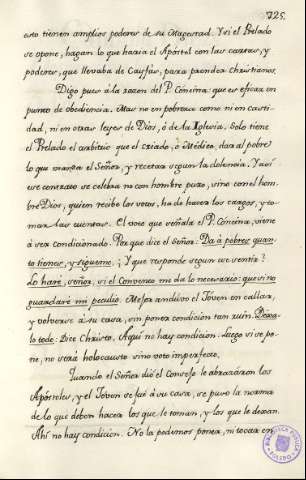 725.
esto tienen amplios poderes de su Magestad. Y si el Prelado
se opone, hagan lo que haria el Apóstol con las cartas, y
poderes, que llevaba de Cayfás, para prender Christianos.
Digo pues à la razon del P. Concina: que es eficaz en
punto de obediencia. Mas no en pobreza como ni en casti
dad, ni en otras leyes de Dios, ò de la Iglesia. Solo tiene
el Prelado el arbitrio que el criado, ò Médico, dar al pobre
lo que manda el Señor, y recetar segun la dolencia. Y asi
ese contrato se celebra no con hombre puro, sino con el hom
bre Dios, quien recibe los votos, ha de hacer los cargos, y to
mar las cuentas. El voto que señala el P. Concina, viene
à ser condicionado. Porque dice el Señor: Da à pobres quan
to tienes, y sigueme. ¿Y que responde segun ese sentir?
Lo haré, señor, si el Convento me da lo necesario: que si no
guardaré mi peculio. Mejor anduvo el Jóven en callar,
y volverse à su casa, sin poner condicion tan ruin. Dexa
lo todo. Dice Christo. Aquí no hay condicion. Luego si se po
ne, no será holocausto sino voto imperfecto.
Quando el Señor dió el Consejo le abrazaron los
Apóstoles, y el Jóven se fué à su casa, se puso la norma
de lo que deben hacer los que le toman, y los que le dexan.
Ahi no hay condicion. No la podemos poner, ni tocar en
BIBLIOTECA PUBLICA
TOLEDO